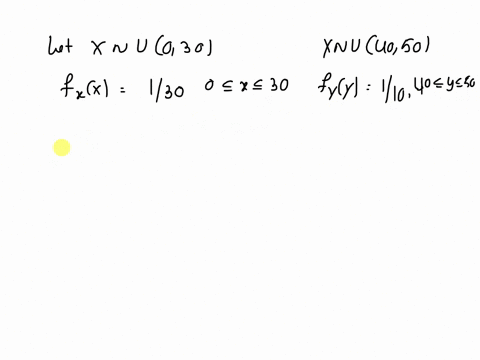 Let X ~ U(0,30) X~U(40,50)
fx(x) = 1/30 0 ≤ x ≤ 30 fy(y) = 1/10, 40≤y≤50